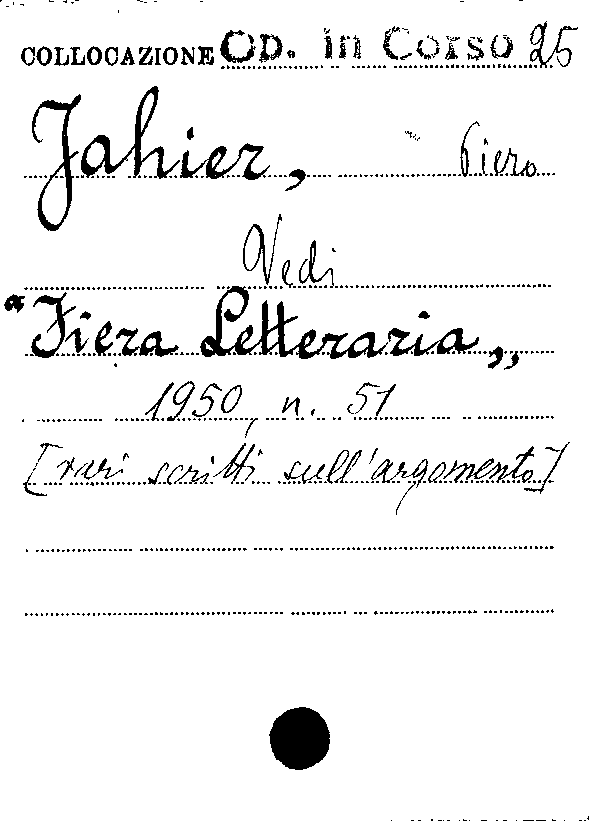 COLLOCAZIONE OP. in Corso 25
Jahier, Piero
Vedi
"Fiera Letteraria,,
1950, n. 51
[vari scritti sull'argomento]